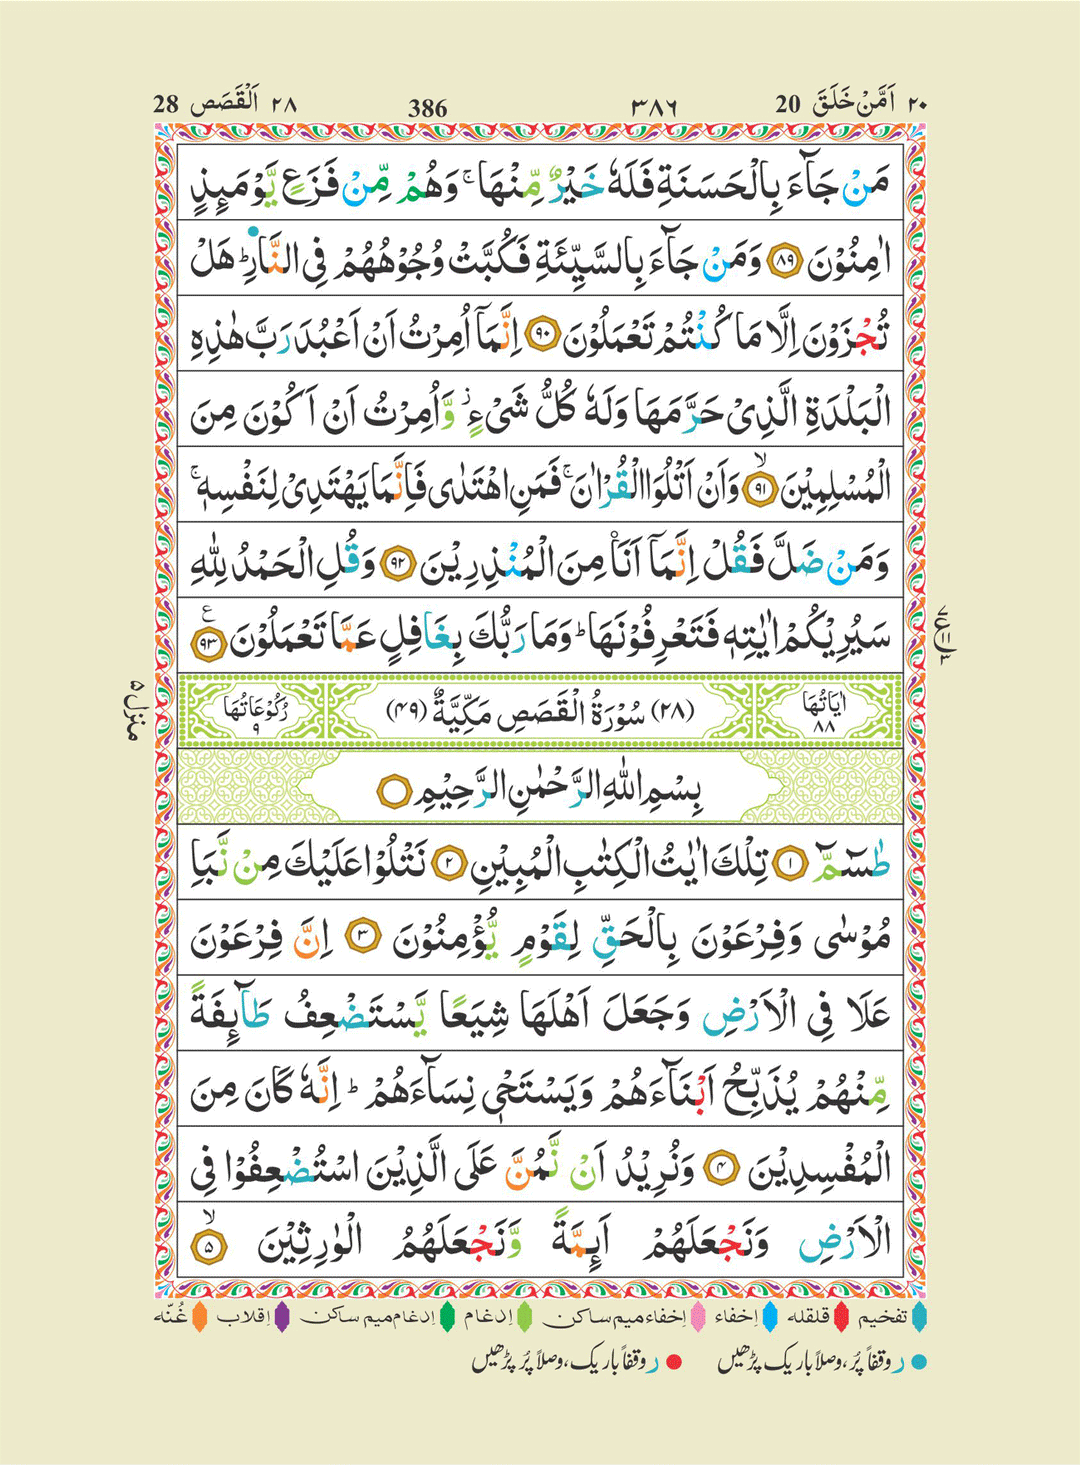 ٢٠ اَمَّنْ خَلَقَ 20 ٣٨٦ 386 ٢٨ اَلْقَصَص 28
مَنْ جَآءَ بِالْحَسَنَةِ فَلَهٗ خَيْرٌ مِّنْهَا ۚ وَهُمْ مِّنْ فَزَعٍ يَّوْمَىِٕذٍ
اٰمِنُوْنَ ۝٨٩ وَمَنْ جَآءَ بِالسَّيِّئَةِ فَكُبَّتْ وُجُوْهُهُمْ فِى النَّارِ ؕ هَلْ
تُجْزَوْنَ اِلَّا مَا كُنْتُمْ تَعْمَلُوْنَ ۝٩٠ اِنَّمَآ اُمِرْتُ اَنْ اَعْبُدَ رَبَّ هٰذِهِ
الْبَلْدَةِ الَّذِىْ حَرَّمَهَا وَلَهٗ كُلُّ شَىْءٍ ز وَّاُمِرْتُ اَنْ اَكُوْنَ مِنَ
الْمُسْلِمِيْنَ ۙ۝٩١ وَاَنْ اَتْلُوَا الْقُرْاٰنَ ۚ فَمَنِ اهْتَدٰى فَاِنَّمَا يَهْتَدِىْ لِنَفْسِهٖ ۚ
وَمَنْ ضَلَّ فَقُلْ اِنَّمَآ اَنَا۠ مِنَ الْمُنْذِرِيْنَ ۝٩٢ وَقُلِ الْحَمْدُ لِلّٰهِ
سَيُرِيْكُمْ اٰيٰتِهٖ فَتَعْرِفُوْنَهَا ؕ وَمَا رَبُّكَ بِغَافِلٍ عَمَّا تَعْمَلُوْنَ ۝٩٣ ع
منزل ۵
اٰيَاتُهَا ٨٨ (٢٨) سُوْرَةُ الْقَصَصِ مَكِّيَّةٌ (٤٩) رُكُوْعَاتُهَا ٩
بِسْمِ اللّٰهِ الرَّحْمٰنِ الرَّحِيْمِ
طٰسٓمّٓ ۝١ تِلْكَ اٰيٰتُ الْكِتٰبِ الْمُبِيْنِ ۝٢ نَتْلُوْا عَلَيْكَ مِنْ نَّبَاِ
مُوْسٰى وَفِرْعَوْنَ بِالْحَقِّ لِقَوْمٍ يُّؤْمِنُوْنَ ۝٣ اِنَّ فِرْعَوْنَ
عَلَا فِى الْاَرْضِ وَجَعَلَ اَهْلَهَا شِيَعًا يَّسْتَضْعِفُ طَآىِٕفَةً
مِّنْهُمْ يُذَبِّحُ اَبْنَآءَهُمْ وَيَسْتَحْىٖ نِسَآءَهُمْ ؕ اِنَّهٗ كَانَ مِنَ
الْمُفْسِدِيْنَ ۝٤ وَنُرِيْدُ اَنْ نَّمُنَّ عَلَى الَّذِيْنَ اسْتُضْعِفُوْا فِى
الْاَرْضِ وَنَجْعَلَهُمْ اَىِٕمَّةً وَّنَجْعَلَهُمُ الْوٰرِثِيْنَ ۙ۝٥
تفخیم قلقله اِخفاء اِخفاءمیم ساکن اِدغام اِدغام میم ساکن اِقلاب غُنّه
ر وقفاً پُر، وصلاً باریک پڑھیں ر وقفاً باریک، وصلاً پُر پڑھیں